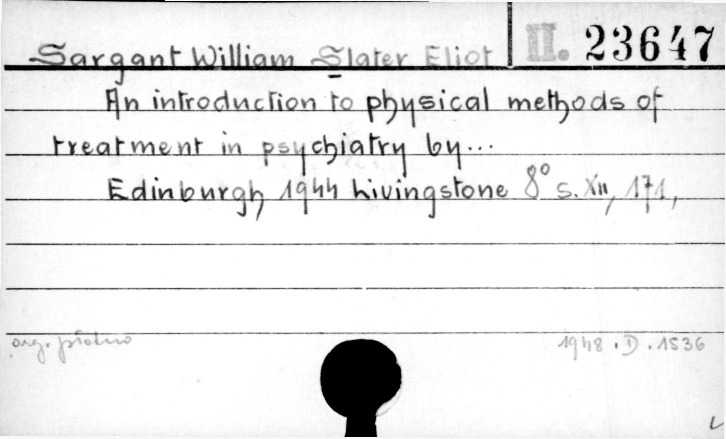 Sargant William Slater Eliot II. 23647
An introduction to physical methods of
treatment in psychiatry by...
Edinburgh 1944 Livingstone 8° s. XII, 171,
org. płótno 1948. D. 1536